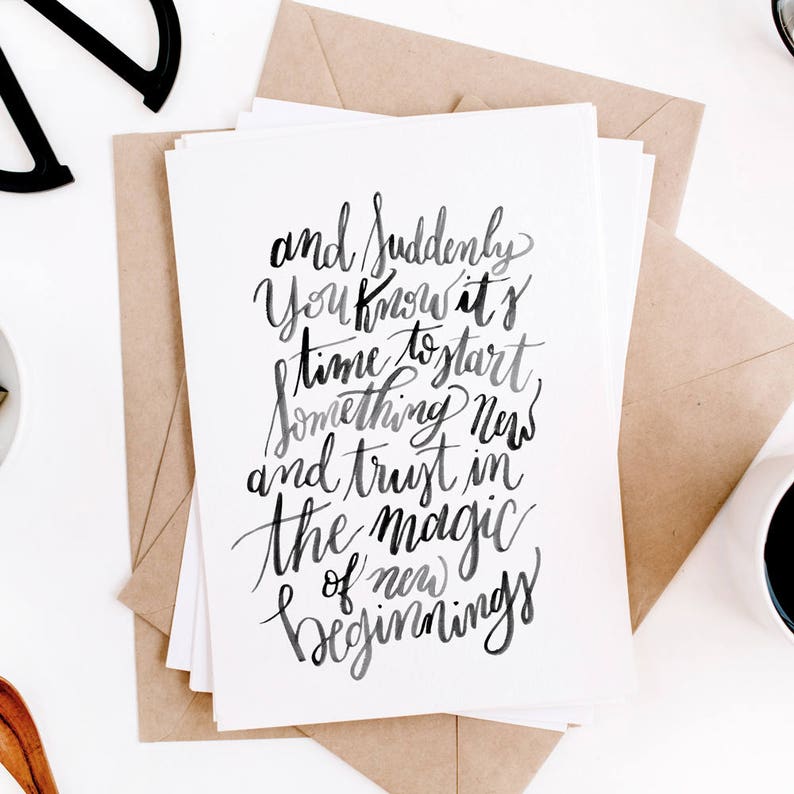 and Suddenly
You know it's
time to start
Something new
and trust in
the magic
of new
beginnings